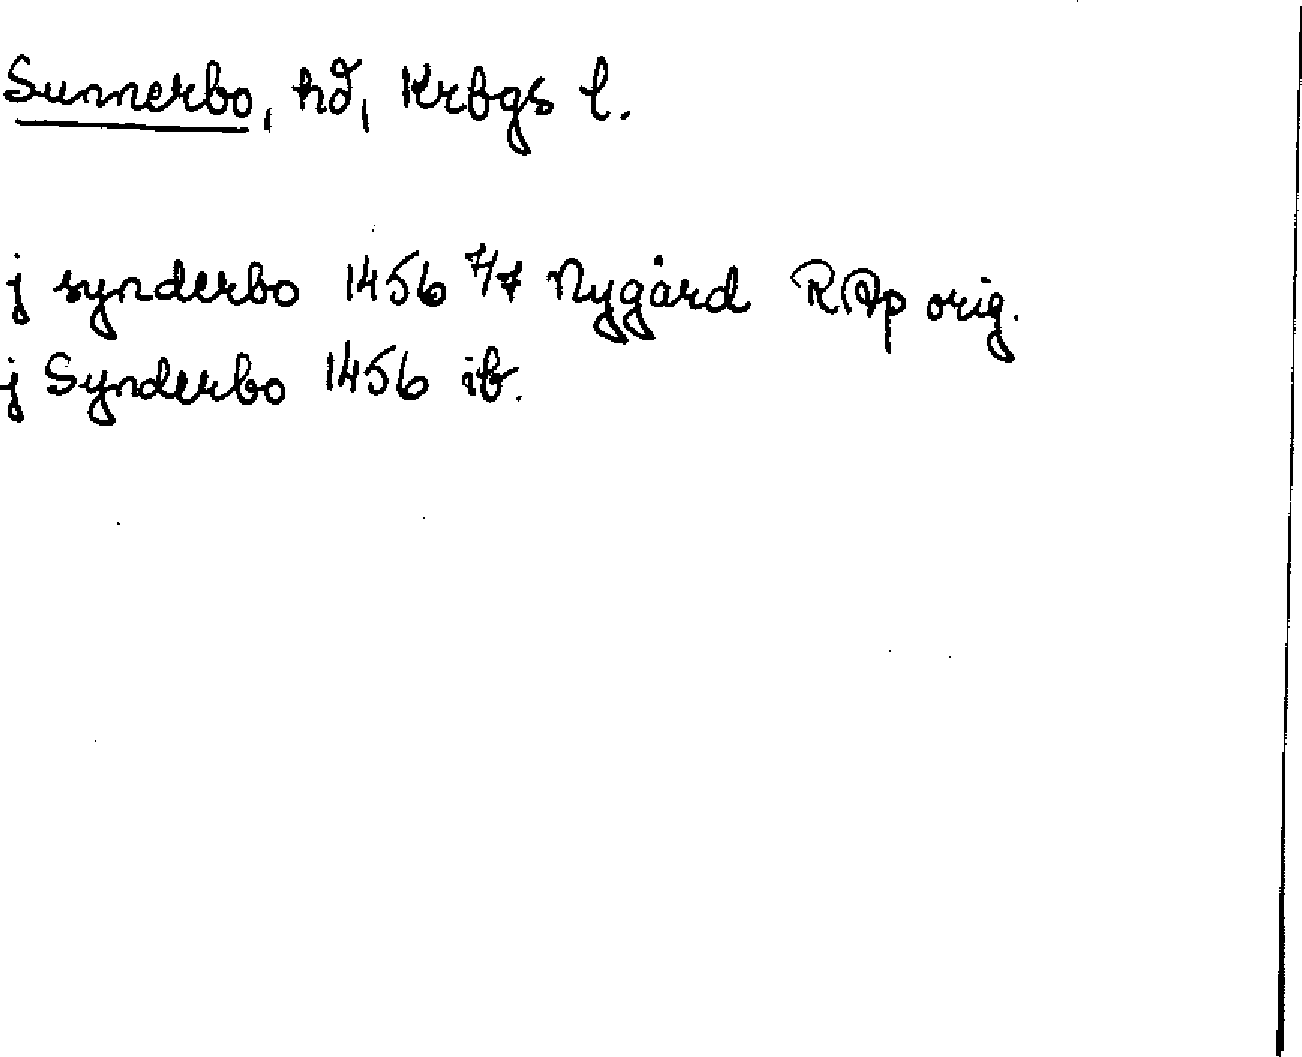 Sunnerbo, hd, Krbgs l.
j synderbo 1456 7/7 Nygård RAp orig.
j Synderbo 1456 ib.